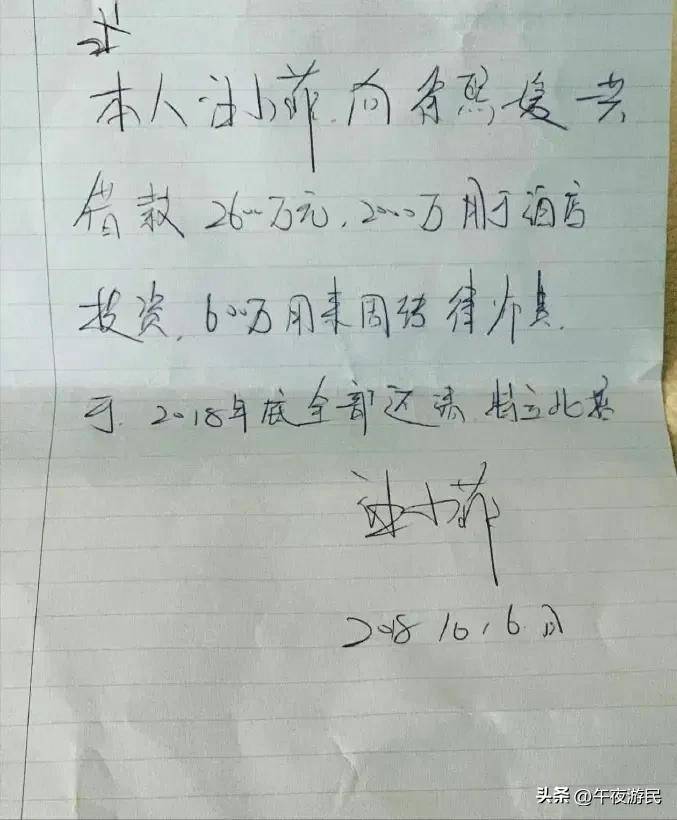 本人汪小菲向徐熙媛共
借款2600万元，2000万用于酒店
投资，600万用来周转律师费，
于2018年底全部还清，特立此据
汪小菲
2018.10.6日
头条@午夜游民